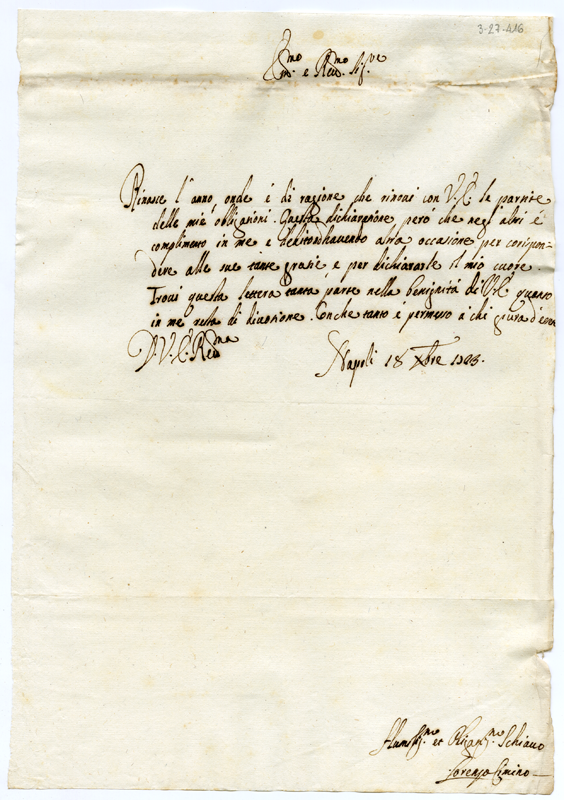 3-27-416
Em.mo e Rev.mo Sig.re
Rinasce l'anno, onde è di ragione che rinovi con V.E. le partite
delle mie obligationi. Questa dichiaratione però che negl'altri è
complimento in me è debito havendo altra occasione per corrispon-
dere alle sue tante grazie, e per dichiararle il mio cuore.
Trovi questa lettera tanta parte nella benignità di V.E. quanto
in me resta di divozione. Con che tanto è permesso a chi giura d'essere
D.V.E. Rev.ma
Napoli 18 Xbre
Humiliss.mo et Schiavo
Lorenzo Cimino